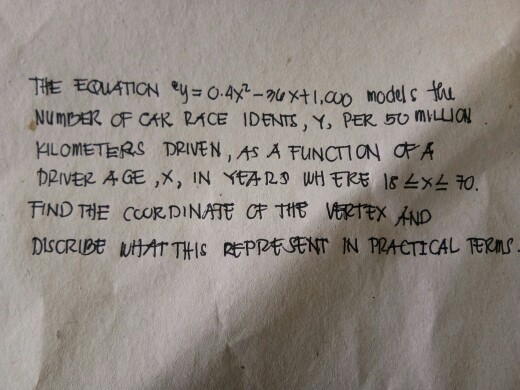 THE EQUATION "y = 0.4x² - 36x + 1,000 models the
NUMBER OF CAR RACE IDENTS, Y, PER 50 MILLION
KILOMETERS DRIVEN, AS A FUNCTION OF A
DRIVER AGE, X, IN YEARS WHERE 18 ≤ x ≤ 70.
FIND THE COORDINATE OF THE VERTEX AND
DISCRIBE WHAT THIS REPRESENT IN PRACTICAL TERMS.